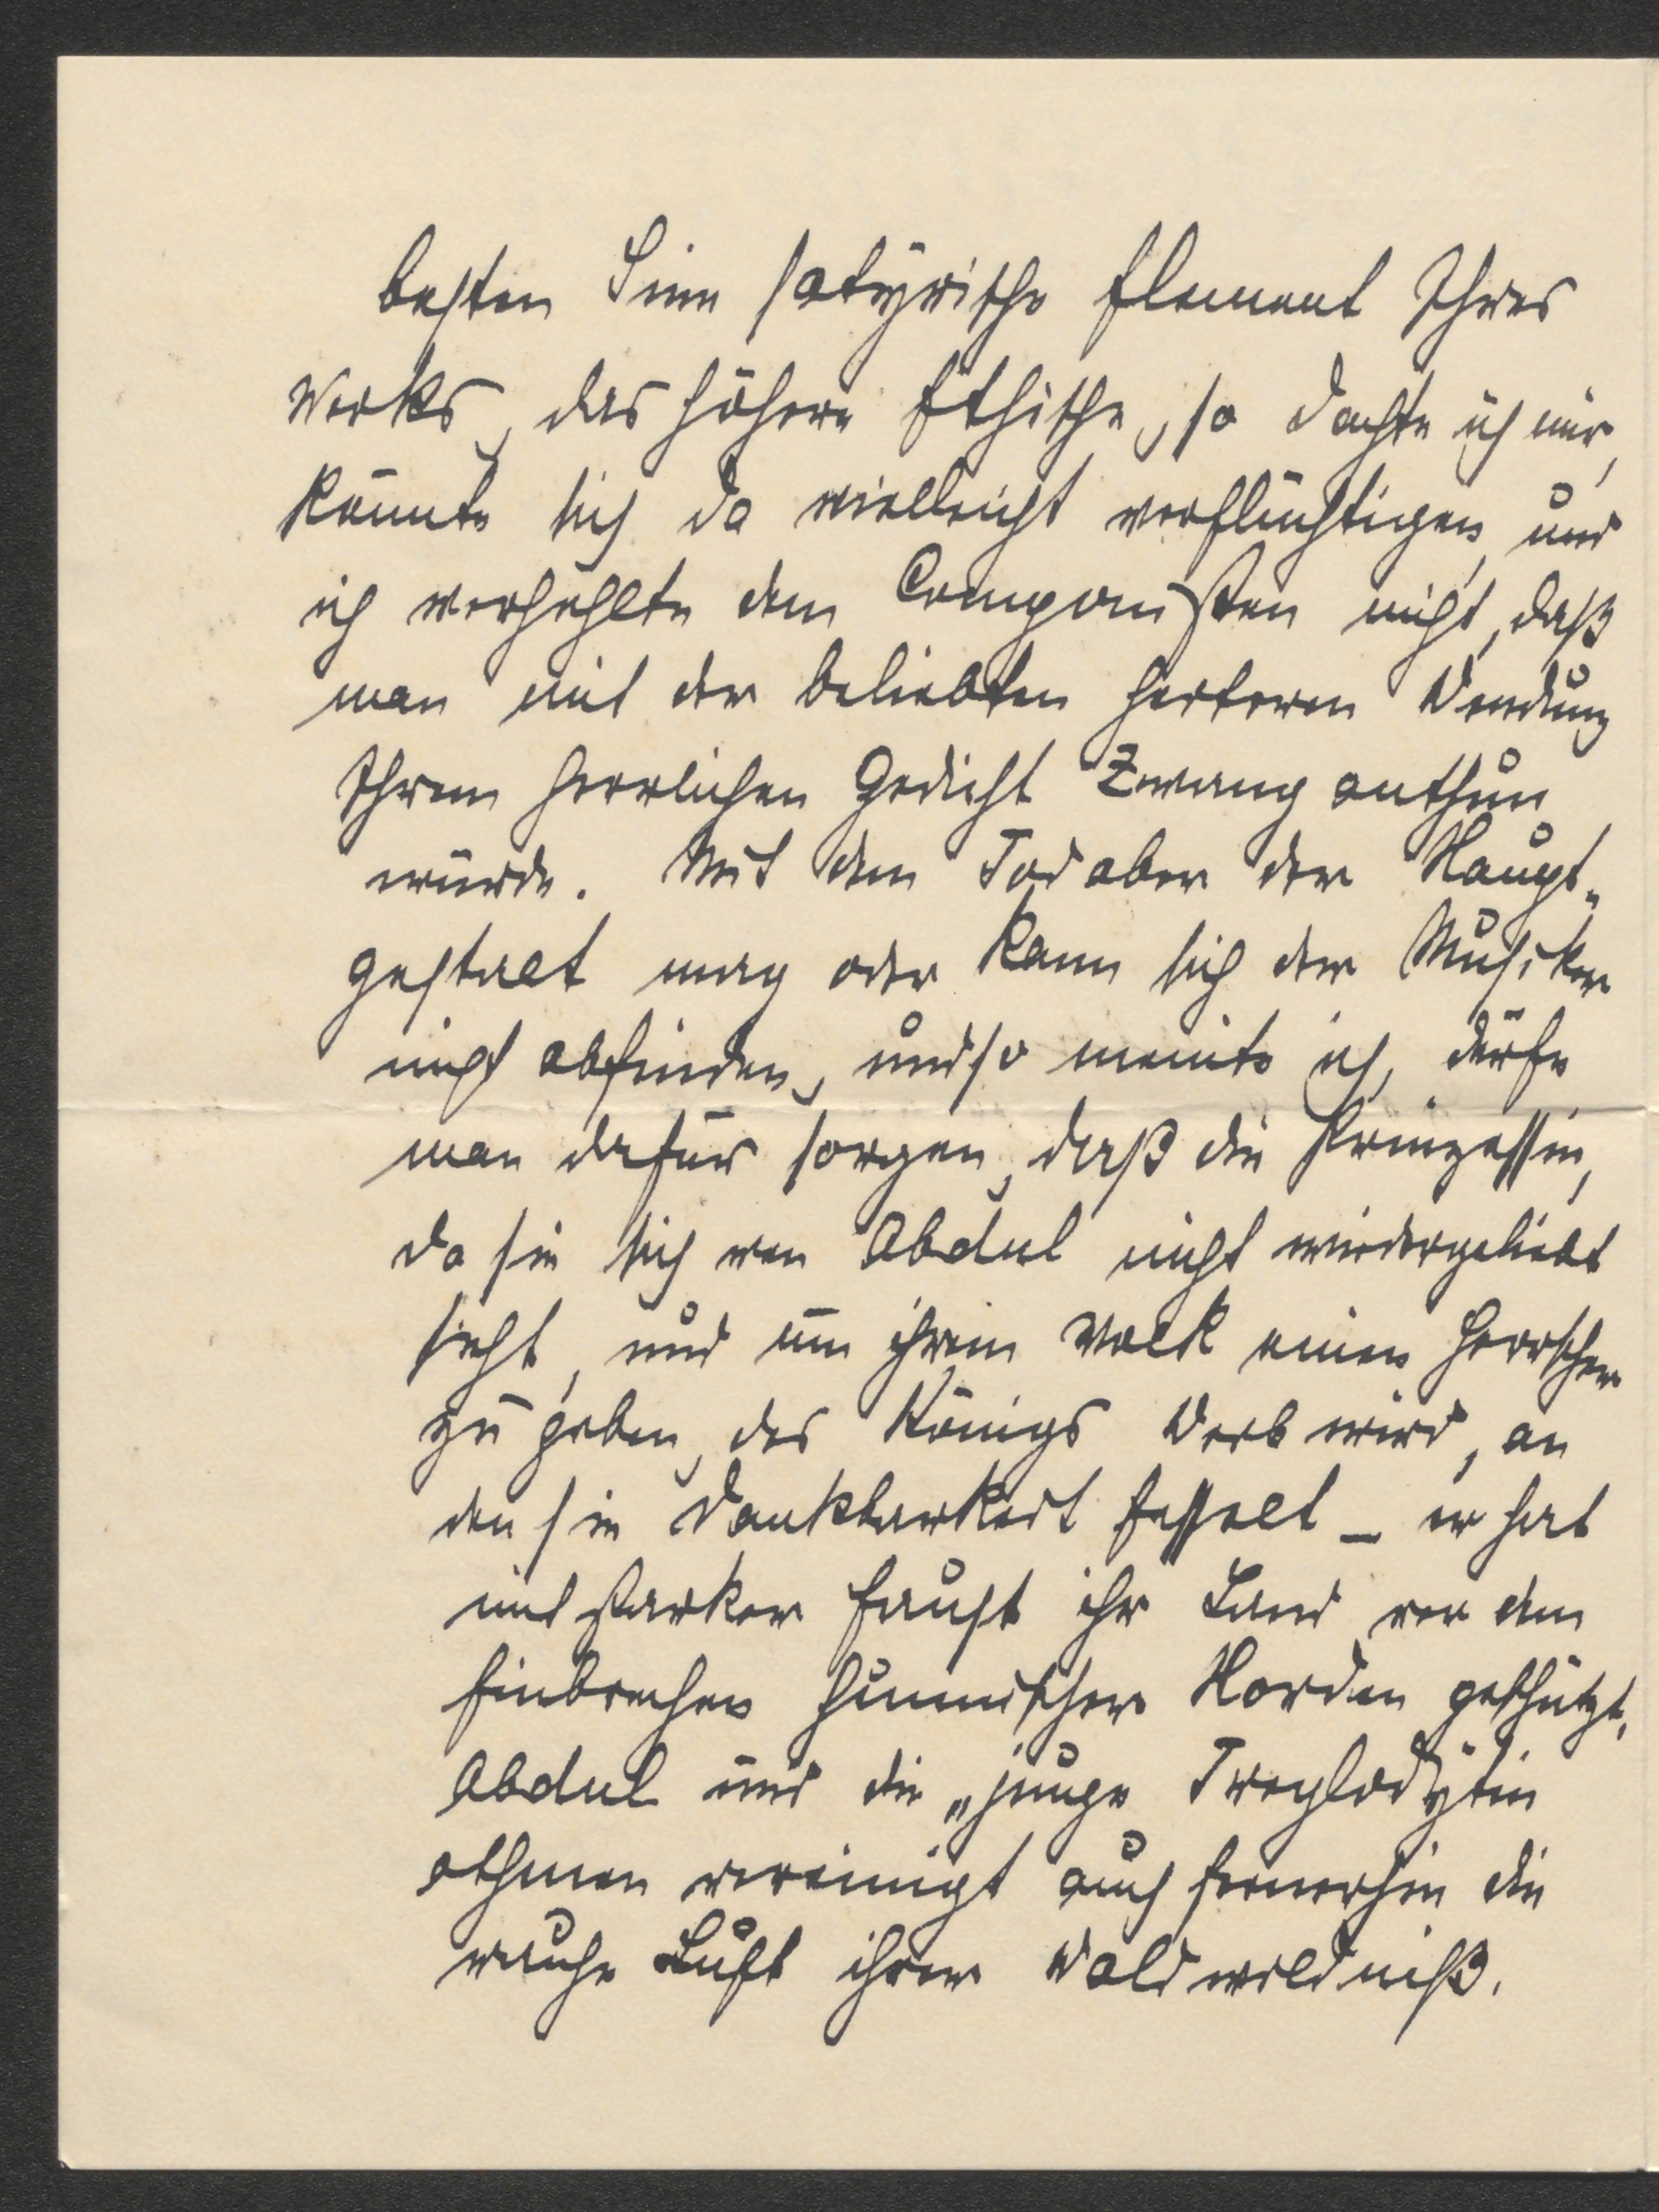 besten Sinn satyrische Element Ihres
Werks, das höhere Ethische, so dachte ich mir,
könnte sich da vielleicht verflüchtigen, und
ich verhehlte dem Componisten nicht, daß
man mit der beliebten heiteren Wendung
Ihrem herrlichen Gedicht Zwang anthun
würde. Mit dem Tod aber der Haupt-
gestalt mag oder kann sich der Musiker
nicht abfinden, und so meinte ich, dürfe
man dafür sorgen, daß die Prinzessin,
da sie sich von Abdul nicht wiedergeliebt
sieht, und um ihrem Volk einen Herrscher
zu geben, des Königs Weib wird, an
den sie Dankbarkeit fesselt – er hat
mit starker Faust ihr Land vor dem
Einbrechen hunnischer Horden geschützt.
Abdul und die „junge Troglodytin
athmen vereinigt auch fernerhin die
rauhe Luft ihrer Waldwildniß.